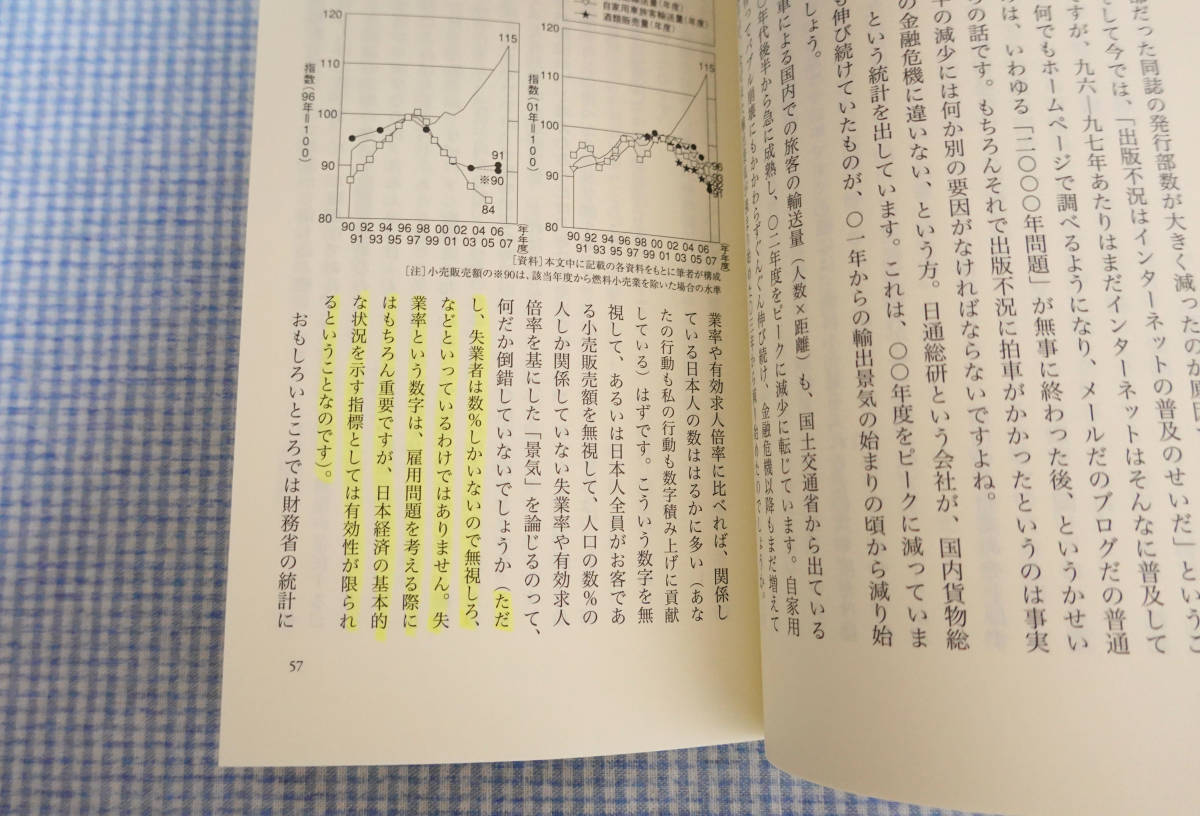 部だった同誌の発行部数が大きく減ったのが
そして今では、「出版不況はインターネットの普及のせいだ」というこ
ですが、九六―九七年あたりはまだインターネットはそんなに普及して
何でもホームページで調べるようになり、メールだのブログだの普通
は、いわゆる「二〇〇〇年問題」が無事に終わった後、というかせい
の話です。もちろんそれで出版不況に拍車がかかったというのは事実
の減少には何か別の要因がなければならないですよね。
の金融危機に違いない、という方。日通総研という会社が、国内貨物総
という統計を出しています。これは、〇〇年度をピークに減っていま
も伸び続けていたものが、〇一年からの輸出景気の始まりの頃から減り始
しょう。
車による国内での旅客の輸送量（人数×距離）も、国土交通省から出ている
〇年代後半から急に成熟し、〇二年度をピークに減少に転じています。自家用
バブル崩壊にもかかわらずぐんぐん伸び続け、金融危機以降もまだ増えて
自家用車旅客輸送量（年度）
酒類販売量（年度）
指数（96年＝100）
120
110
100
90
80
115
91
※90
84
90 92 94 96 98 00 02 04 06 年年度
91 93 95 97 99 01 03 05 07
指数（01年＝100）
120
110
100
90
80
115
90 92 94 96 98 00 02 04 06 年年度
91 93 95 97 99 01 03 05 07
［資料］本文中に記載の各資料をもとに筆者が構成
［注］小売販売額の※90は、該当年度から燃料小売業を除いた場合の水準
業率や有効求人倍率に比べれば、関係し
ている日本人の数ははるかに多い（あな
たの行動も私の行動も数字積み上げに貢献
している）はずです。こういう数字を無
視して、あるいは日本人全員がお客であ
る小売販売額を無視して、人口の数％の
人しか関係していない失業率や有効求人
倍率を基にした「景気」を論じるのって、
何だか倒錯していないでしょうか（ただ
し、失業者は数％しかいないので無視しろ、
などといっているわけではありません。失
業率という数字は、雇用問題を考える際に
はもちろん重要ですが、日本経済の基本的
な状況を示す指標としては有効性が限られ
るということなのです）。
おもしろいところでは財務省の統計に
57